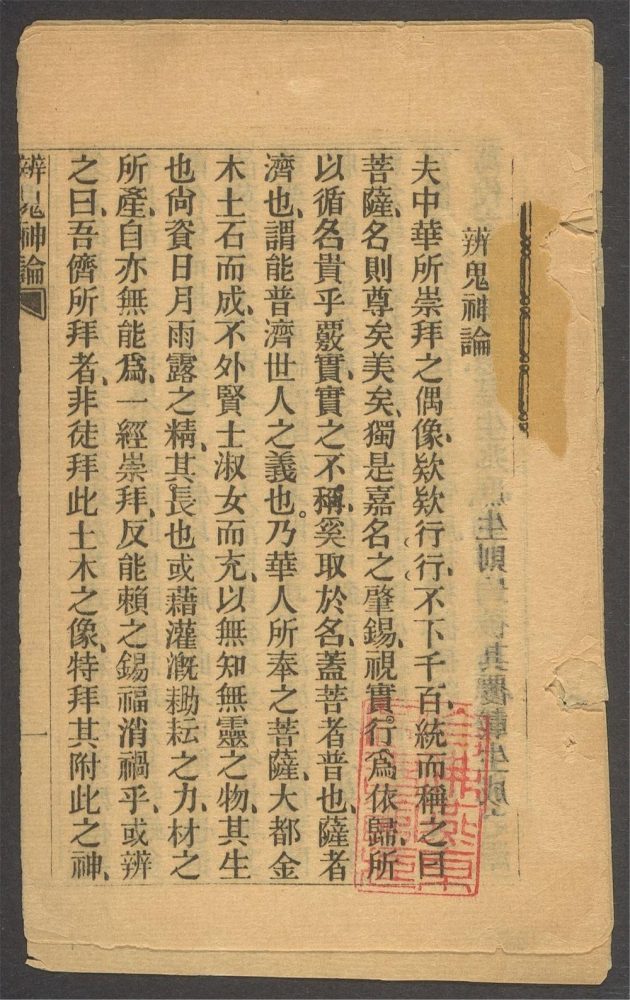 辨鬼神論
夫中華所崇拜之偶像、欵欵行行、不下千百、統而稱之曰
菩薩、名則尊矣美矣、獨是嘉名之肇錫、視實行爲依歸、所
以循名貴乎覈實、實之不稱、奚取於名、蓋菩者普也、薩者
濟也、謂能普濟世人之義也。乃華人所奉之菩薩、大都金
木土石而成、不外賢士淑女而充、以無知無靈之物、其生
也尙資日月雨露之精、其長也或藉灌漑耡耘之力、材之
所產、自亦無能爲、一經崇拜、反能賴之錫福消禍乎、或辨
之曰、吾儕所拜者、非徒拜此土木之像、特拜其附此之神、
辨鬼神論
一